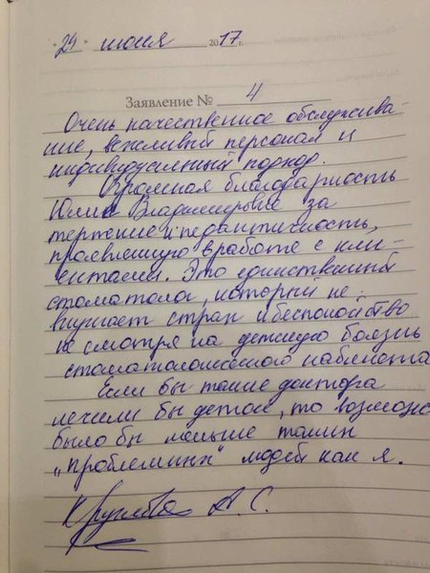 29 июня 2017 г.
Заявление № 4
Очень качественное обслужива-
ние, вежливый персонал и
индивидуальный подход.
Огромная благодарность
Юлии Владимировне за
терпение и педантичность,
проявленную в работе с кли-
ентами. Это единственный
стоматолог, который не
внушает страх и беспокойство
не смотря на детскую боязнь
стоматологического кабинета
Если бы такие доктора
лечили бы деток, то возможно
было бы меньше таких
"проблемных" людей как я.
А. С.